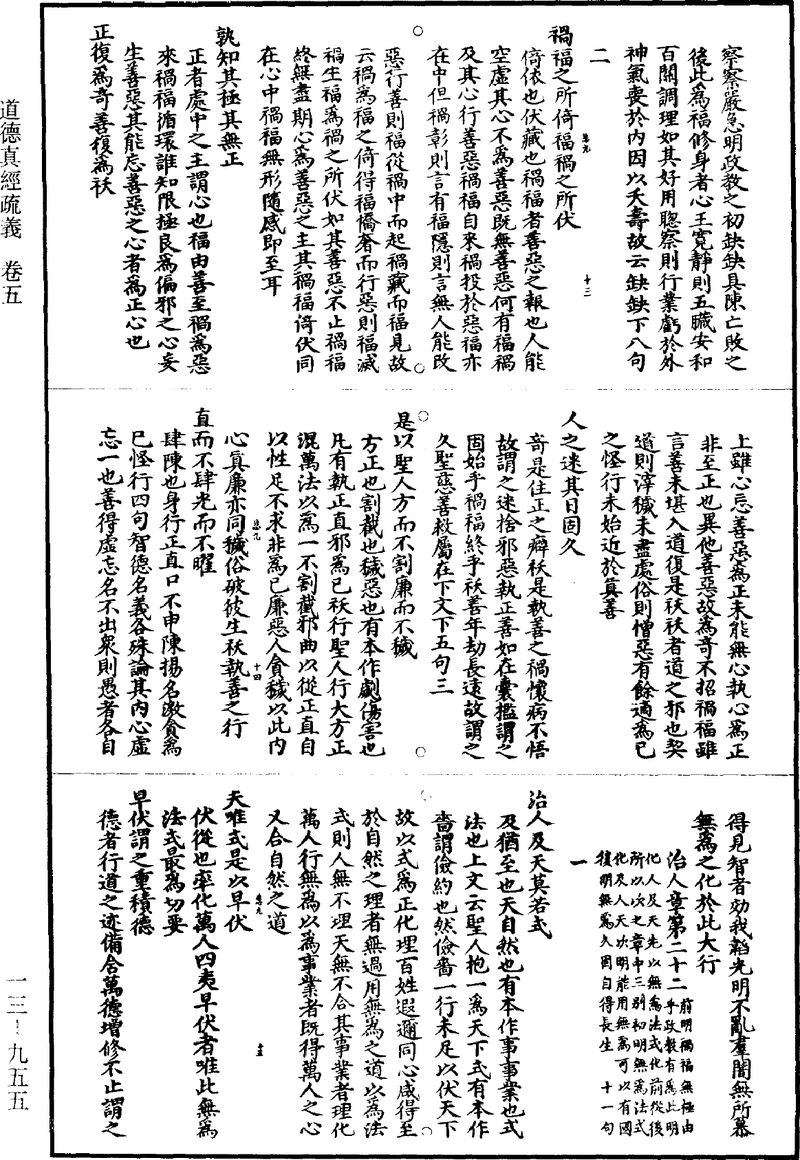 道德真經疏義　卷五
察察嚴急明政教之初缺缺具陳亡敗之
後此為福修身者心王寬靜則五臟安和
百關調理如其好用聰察則行業虧於外
神氣喪於內因以夭壽故云缺缺下八句
二
禍福之所倚福禍之所伏
倚依也伏藏也禍福者善惡之報也人能
空虛其心不為善惡既無善惡何有福禍
及其心行善惡禍福自來禍投於惡福亦
在中但禍彰則言有福隱則言無人能改
惡行善則福從禍中而起禍藏而福見故
云禍為福之倚得福憍奢而行惡則福滅
禍生福為禍之所伏如其善惡不止禍福
終無盡期心為善惡之主其禍福倚伏同
在心中禍福無形隨感即至耳
孰知其極其無正
正者處中之主謂心也福由善至禍為惡
來禍福循環誰知限極良為偏邪之心妄
生善惡其能忘善惡之心者為正心也
正復為奇善復為袄
上雖心忘善惡為正未能無心執心為正
非至正也異他善惡故為奇不招禍福雖
言善未堪入道復是袄袄者道之邪也契
道則滓穢未盡處俗則憎惡有餘適為已
之怪行未始近於真善
人之迷其日固久
奇是住正之癖袄是執善之禍懷病不悟
故謂之迷捨邪惡執正善如在囊檻謂之
固始乎禍福終乎袄善年劫長遠故謂之
久聖慈善救屬在下文下五句三
是以聖人方而不割廉而不穢
方正也割截也穢惡也有本作劌傷害也
凡有執正直邪為已袄行聖人行大方正
混萬法以為一不割截邪曲以從正直自
以性足不求非為已廉惡人貪穢以此內
心真廉亦同穢俗破彼生袄執善之行
直而不肆光而不曜
肆陳也身行正直口不申陳揚名激貪為
已怪行四句智德名義各殊論其內心虛
忘一也善得虛忘名不出衆則愚者各自
得見智者効我韜光明不亂羣闇無所慕
無為之化於此大行
治人章第二十二
一
治人及天莫若式
及猶至也天自然也有本作事事業也式
法也上文云聖人抱一為天下式有本作
嗇謂儉約也然儉嗇一行未足以伏天下
故以式為正化理百姓遐邇同心咸得至
於自然之理者無過用無為之道以為法
式則人無不理天無不合其事業者理化
萬人行無為以為事業者既得萬人之心
又合自然之道
夫唯式是以早伏
伏從也率化萬人四夷早伏者唯此無為
法式最為切要
早伏謂之重積德
德者行道之迹備含萬德增修不止謂之
一三—九五五